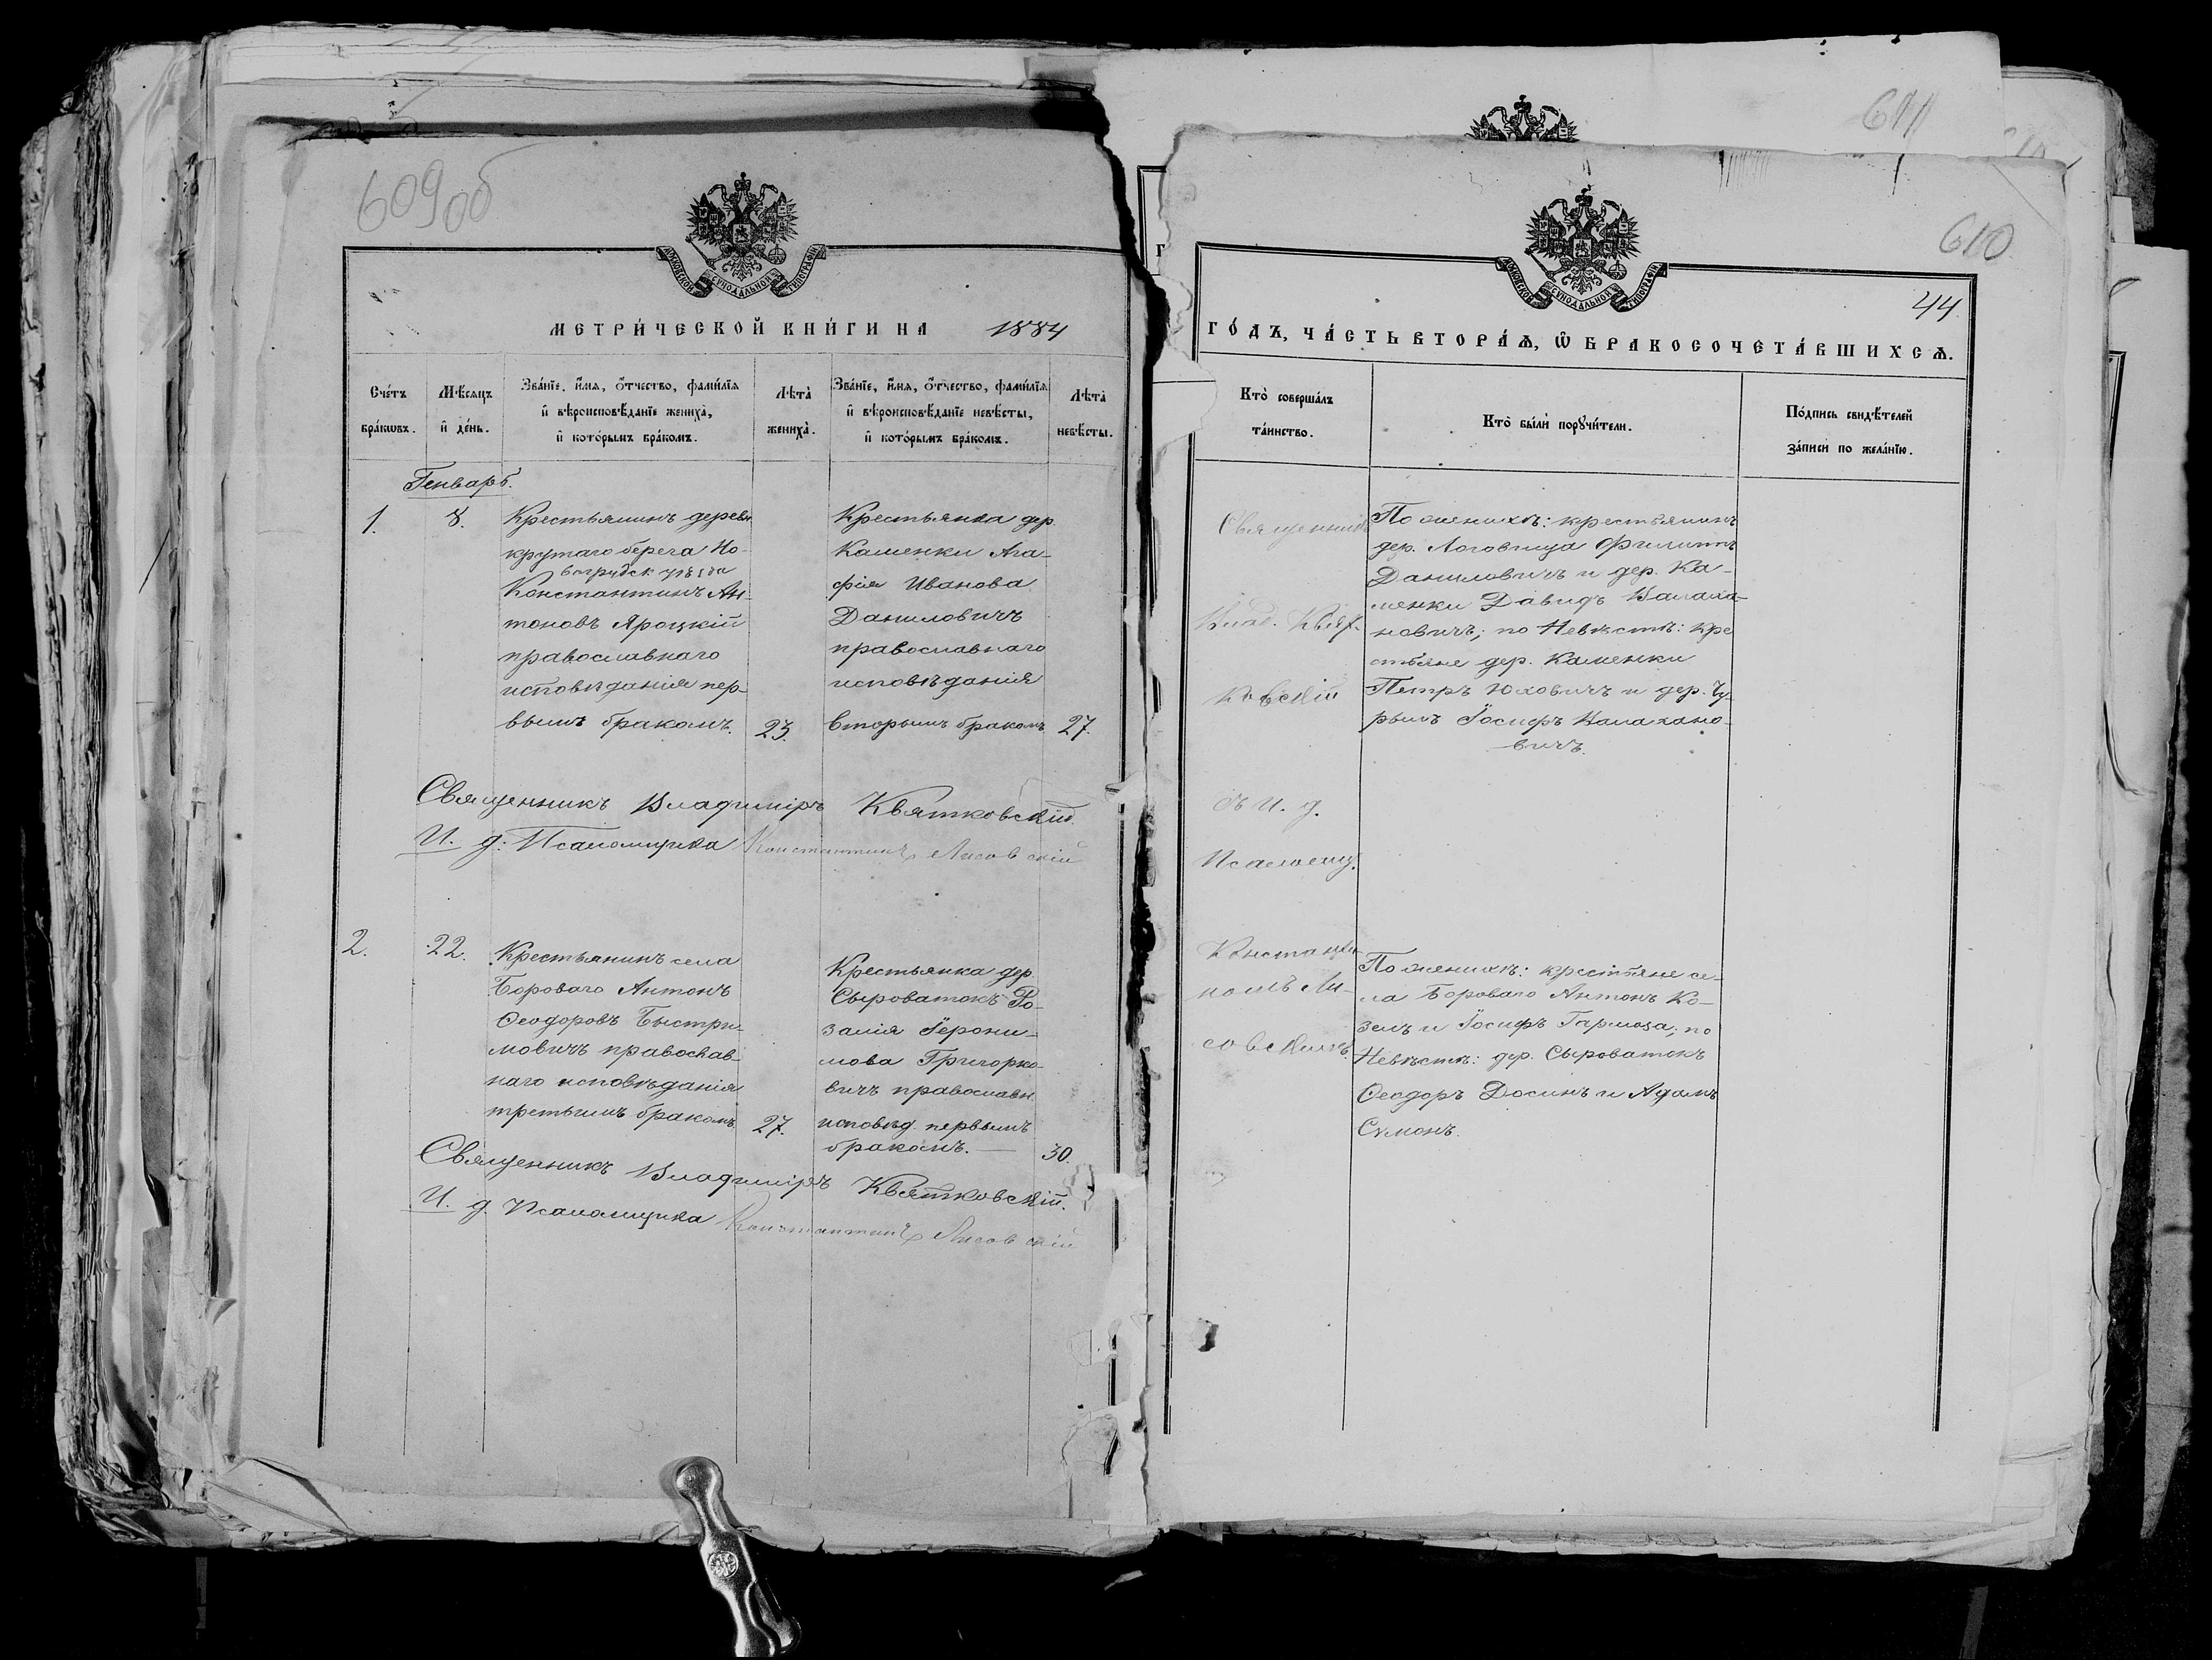 609об
МОСКОВСКОЙ СѴНОДАЛЬНОЙ ТИПОГРАФІИ
МЕТРИ́ЧЕСКОЙ КНИ́ГИ НА 1884
Сче́тъ бра́кωвъ.
Мѣ́сяцъ и҆ де́нь.
Зва́нїе, и҆́мя, ѻ҆́тчество, фами́лїя
и҆ вѣроисповѣ́данїе жениха̀,
и҆ кото́рымъ бра́комъ.
Лѣ́та жениха̀.
Зва́нїе, и҆́мя, ѻ҆́тчество, фами́лїя
и҆ вѣроисповѣ́данїе невѣ́сты,
и҆ кото́рымъ бра́комъ.
Лѣ́та невѣ́сты.
Генварь.
1.
8.
Крестьянинъ деревн
крутаго берега Но-
вогрудск уѣзда
Константинъ Ан-
тоновъ Яроцкій
православнаго
исповѣданія пер-
вымъ бракомъ.
23.
Крестьянка дер.
Каменки Ага-
фія Иванова
Даниловичъ
православнаго
исповѣданія
вторымъ бракомъ
27.
Священникъ Владиміръ Квятковскій.
И. д. Псаломщика Константинъ Лисовскій
2.
22.
Крестьянинъ села
Бороваго Антонъ
Ѳеодоровъ Быстри-
мовичъ православ-
наго исповѣданія
третьимъ бракомъ
27.
Крестьянка дер.
Сыроватокъ Ро-
залія Іерони-
мова Григорко-
вичъ православн
исповѣд. первымъ
бракомъ.
30.
Священникъ Владиміръ Квятковскій.
И. д. Псаломщика Константинъ Лисовскій
611
610
МОСКОВСКОЙ СѴНОДАЛЬНОЙ ТИПОГРАФІИ
44
ГО́ДЪ, ЧА́СТЬ ВТОРА́Ѧ, Ѽ БРАКОСОЧЕТА́ВШИХСѦ.
Кто̀ соверша́лъ
та́инство.
Кто̀ бы́ли порꙋчи́тели.
По́дпись свидѣ́телей
за́писи по жела́нїю.
Священникъ
Влад. Квят-
ковскій
съ И. д.
Псаломщ.
Константи-
номъ Ли-
совскимъ.
По женихѣ: крестьянинъ
дер. Логовища Филиппъ
Даниловичъ и дер. Ка-
менки Давидъ Валаха-
новичъ; по Невѣстѣ: кре
стьяне дер. Каменки
Петръ Юховичъ и дер. Чу-
рымъ Іосифъ Валахано-
вичъ.
По женихѣ: крестьяне се-
ла Бороваго Антонъ Ко-
зелъ и Іосифъ Гармоза; по
Невѣстѣ: дер. Сыроватокъ
Ѳеодоръ Досинъ и Адамъ